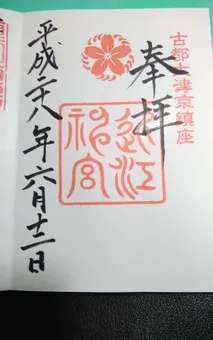 古都大津京鎮座
奉拝
近江神宮
平成二十八年六月十二日